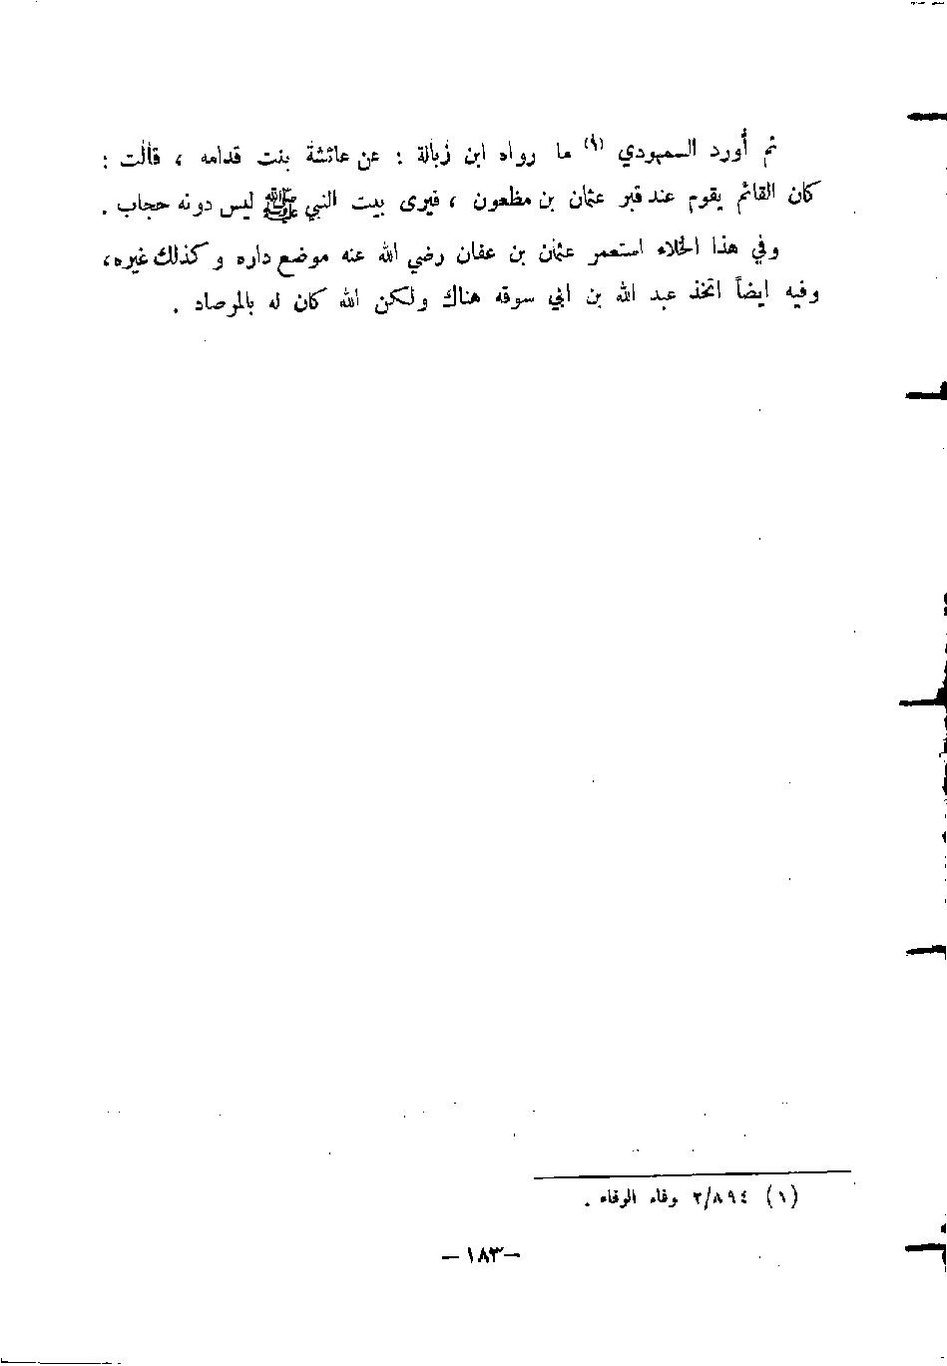 ثم أورد السمهودي (١) ما رواه ابن زبالة : عن عائشة بنت قدامه ، قالت :
كان القائم يقوم عند قبر عثمان بن مظعون ، فيرى بيت النبي ﷺ ليس دونه حجاب .
وفي هذا الخلاء استعمر عثمان بن عفان رضي الله عنه موضع داره وكذلك غيره،
وفيه ايضاً اتخذ عبد الله بن ابي سوقه هناك ولكن الله كان له بالمرصاد .
(١) ٣/٨٩٤ وفاء الوفاء .
–١٨٣–